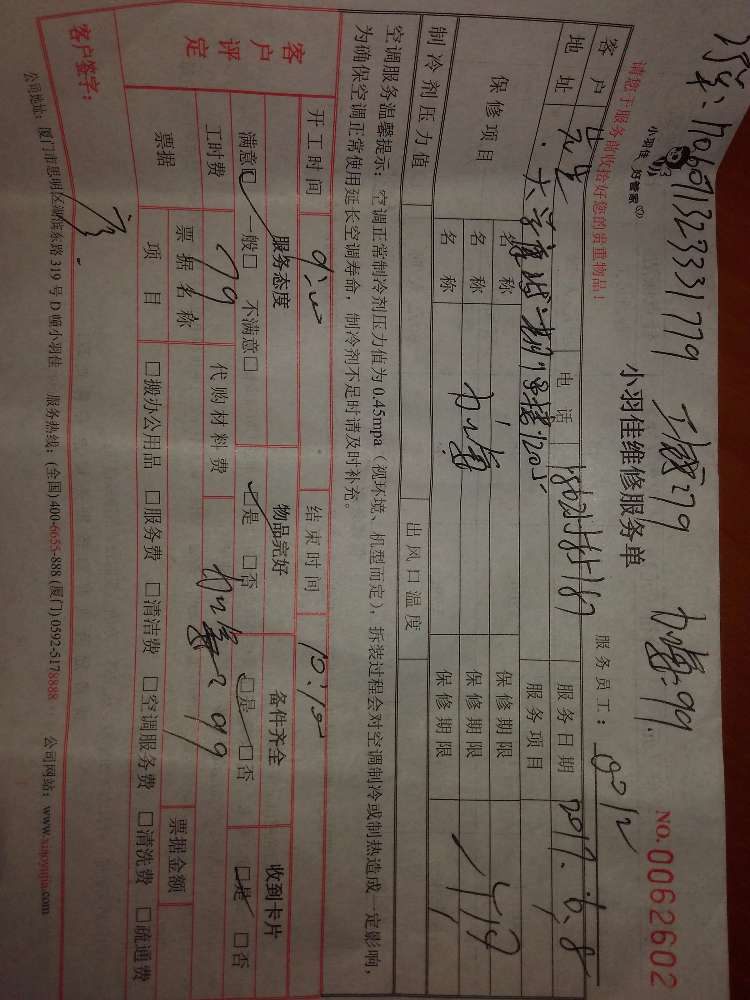 170607132331779 79 99
小羽佳 好管家
小羽佳维修服务单
NO. 0062602
请您于服务前收拾好您的贵重物品!
服务员工: 8012
客户
电话
服务日期 2017.6.8
地址
服务项目
保修项目
名称
保修期限
名称
保修期限
名称
保修期限
制冷剂压力值
出风口温度
空调服务温馨提示: 空调正常制冷剂压力值为 0.45mpa (视环境、机型而定), 拆装过程会对空调制冷或制热造成一定影响,
为确保空调正常使用延长空调寿命, 制冷剂不足时请及时补充。
客户评定
开工时间
结束时间 10:10
服务态度
物品完好
备件齐全
收到卡片
满意□ 一般□ 不满意□
□是 □否
□是 □否
□是 □否
工时费 79
代购材料费 99
票据
票据名称
票据金额
项目
□搬办公用品 □服务费 □清洁费 □空调服务费 □清洗费 □疏通费
客户签字:
公司地址: 厦门市思明区湖滨东路 319 号 D 幢小羽佳 服务热线: (全国) 400-6655-888 (厦门) 0592-5178888 公司网站: www.xiaoyujia.com